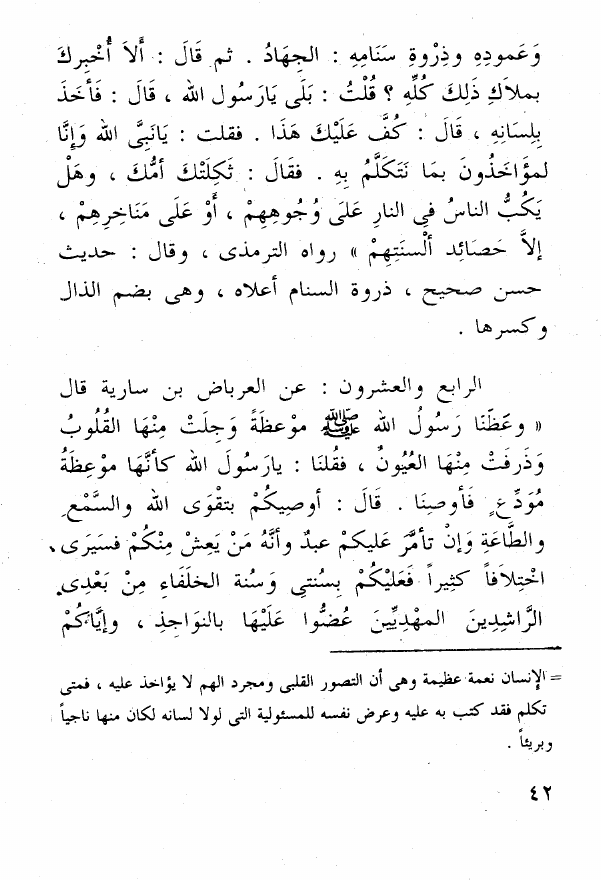 وَعَمودِهِ وذِرْوةِ سَنَامِهِ : الجِهَادُ . ثم قَالَ : أَلاَ أُخْبِركَ
بملاَكِ ذَلِكَ كُلِّهِ ؟ قُلْتُ : بَلَى يَارَسُول الله ، قَالَ : فَأَخَذَ
بِلِسَانِهِ ، قَالَ : كُفَّ عَلَيْكَ هَذَا . فقلت : يَانَبِىَّ الله وَإِنَّا
لمؤَاخَذُونَ بمَا نَتَكَلَّمُ بِهِ . فقَالَ : ثَكِلَتْكَ أمُّكَ ، وهَلْ
يَكُبُّ الناسُ فِى النارِ عَلَى وُجُوهِهِمْ ، أوْ عَلَى مَنَاخِرِهِمْ ،
إلاَّ حَصَائد ألْسنَتِهِمْ » رواه الترمذى ، وقال : حديث
حسن صحيح ، ذروة السنام أعلاه ، وهى بضم الذال
وكسرها .
الرابع والعشرون : عن العرباض بن سارية قال
« وعَظَنَا رَسُولُ الله ﷺ موْعظَةً وَجِلَتْ مِنْهَا القُلُوبُ
وَذَرفَتْ مِنْهَا العُيُونُ ، فقُلنَا : يارسُولَ الله كأنَّهَا موْعِظَةُ
مُوَدِّعٍ فَأوصِنَا . قَالَ : أوصِيكُمْ بتقْوَى الله والسَّمْعِ
والطَّاعَةِ وَإنْ تأمَّرَ عَليكمْ عبدٌ وأنَّهُ مَنْ يَعشْ مِنْكُمْ فسيَرَى
اخْتِلاَفاً كثِيراً فَعَليْكُمْ بِسُنتِى وَسُنة الخلَفَاءِ مِنْ بَعْدِى
الرَّاشِدِينَ المهْدِيِّينَ عُضُّوا عَلَيْهَا بالنوَاجِذِ ، وإيَّاكُمْ
= الإنسان نعمة عظيمة وهى أن التصور القلبى ومجرد الهم لا يؤاخذ عليه ، فمتى
تكلم فقد كتب به عليه وعرض نفسه للمسئولية التى لولا لسانه لكان منها ناجياً
وبريئاً .
٤٢